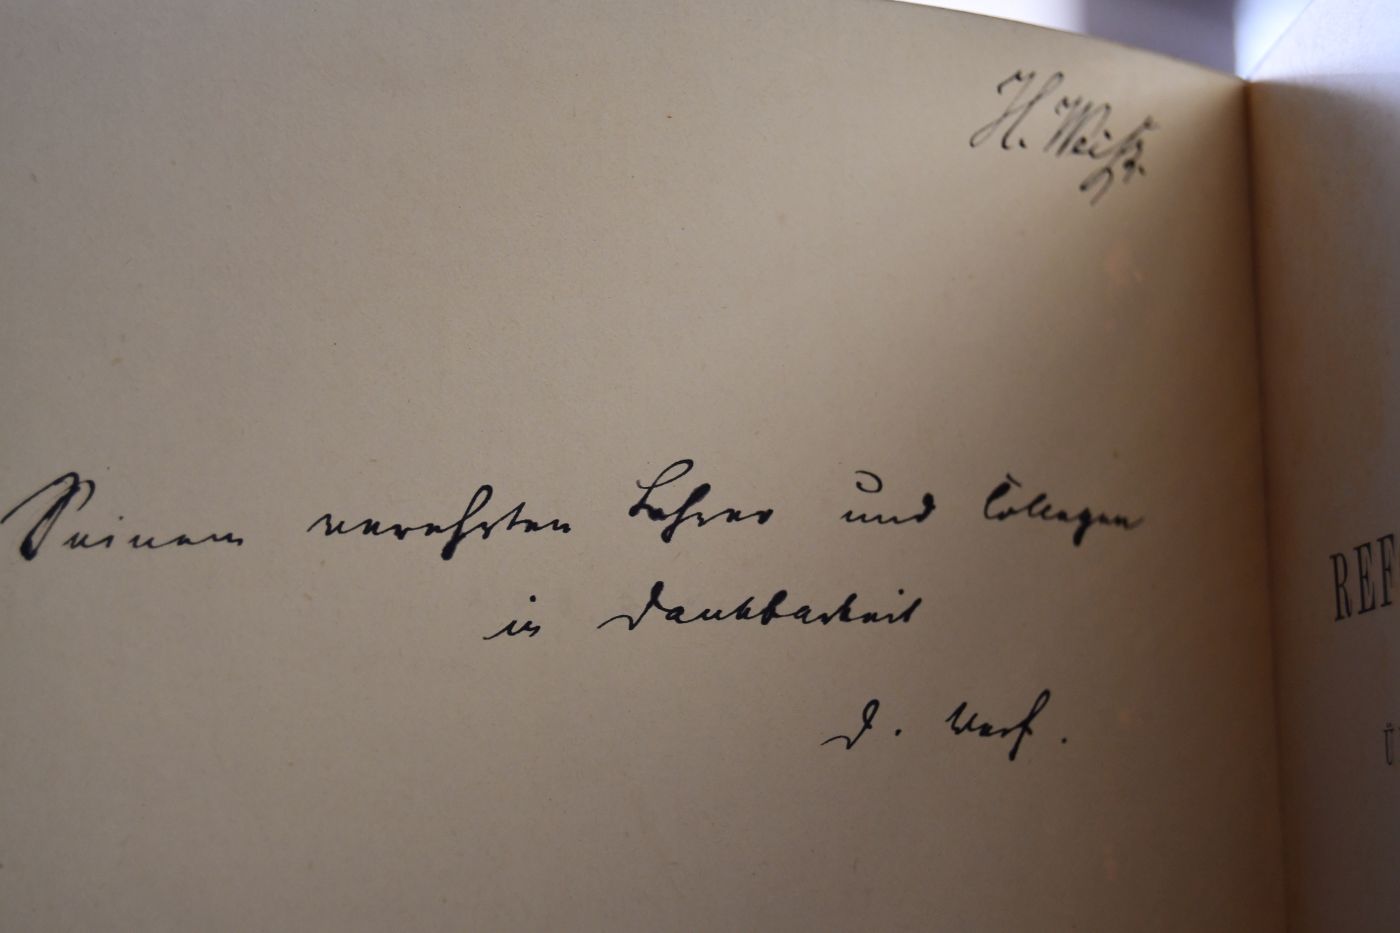 H. Weiß.
Seinem verehrten Lehrer und Collegen
in Dankbarkeit
d. Verf.
REF
Ü